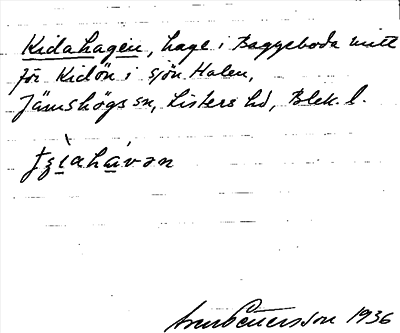 Kidahagen, hage i Baggeboda mitt
för Kidön i sjön Halen,
Jämshögs sn, Listers hd, Blek. l.
Petersson 1936